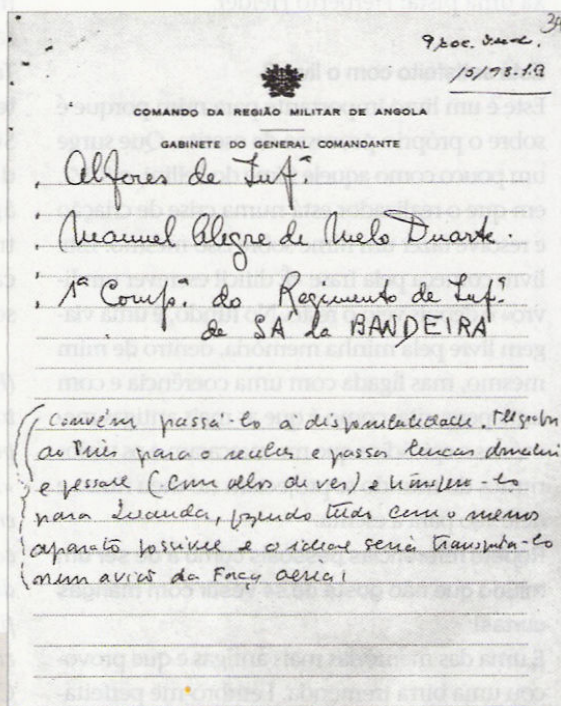 34
COMANDO DA REGIÃO MILITAR DE ANGOLA
GABINETE DO GENERAL COMANDANTE
Alferes de Infª
Manuel Alegre de Melo Duarte.
1ª Compª. do Regimento de Infª
de SÁ da BANDEIRA
Convém passá-lo à disponibilidade,
ao para o receber e passar
e pessoal (com olhos de ver) e
para Luanda, fazendo tudo com o menor
aparato possivel e o ideal seria transportá-lo
num avião da Força aérea;